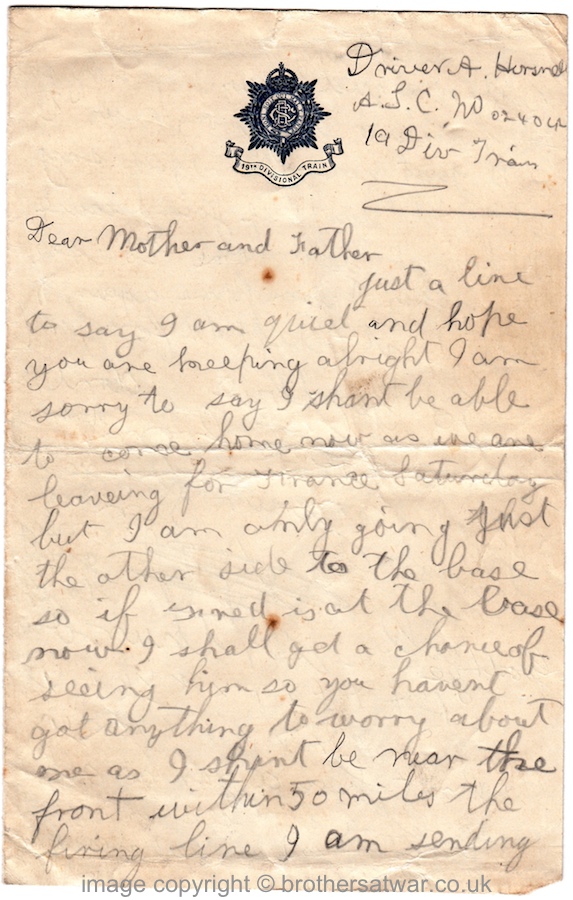 Driver A. Horsnell
A.S.C. No
19 Div Train
19TH DIVISIONAL TRAIN
Dear Mother and Father
just a line
to say I am quiet and hope
you are keeping alright I am
sorry to say I shant be able
to come home now as we are
leaveing for France Saturday
but I am only going just
the other side to the base
so if Fred is at the base
now I shall get a chance of
seeing him so you havent
got anything to worry about
me as I shant be near the
front within 50 miles the
firing line I am sending
image copyright © brothersatwar.co.uk